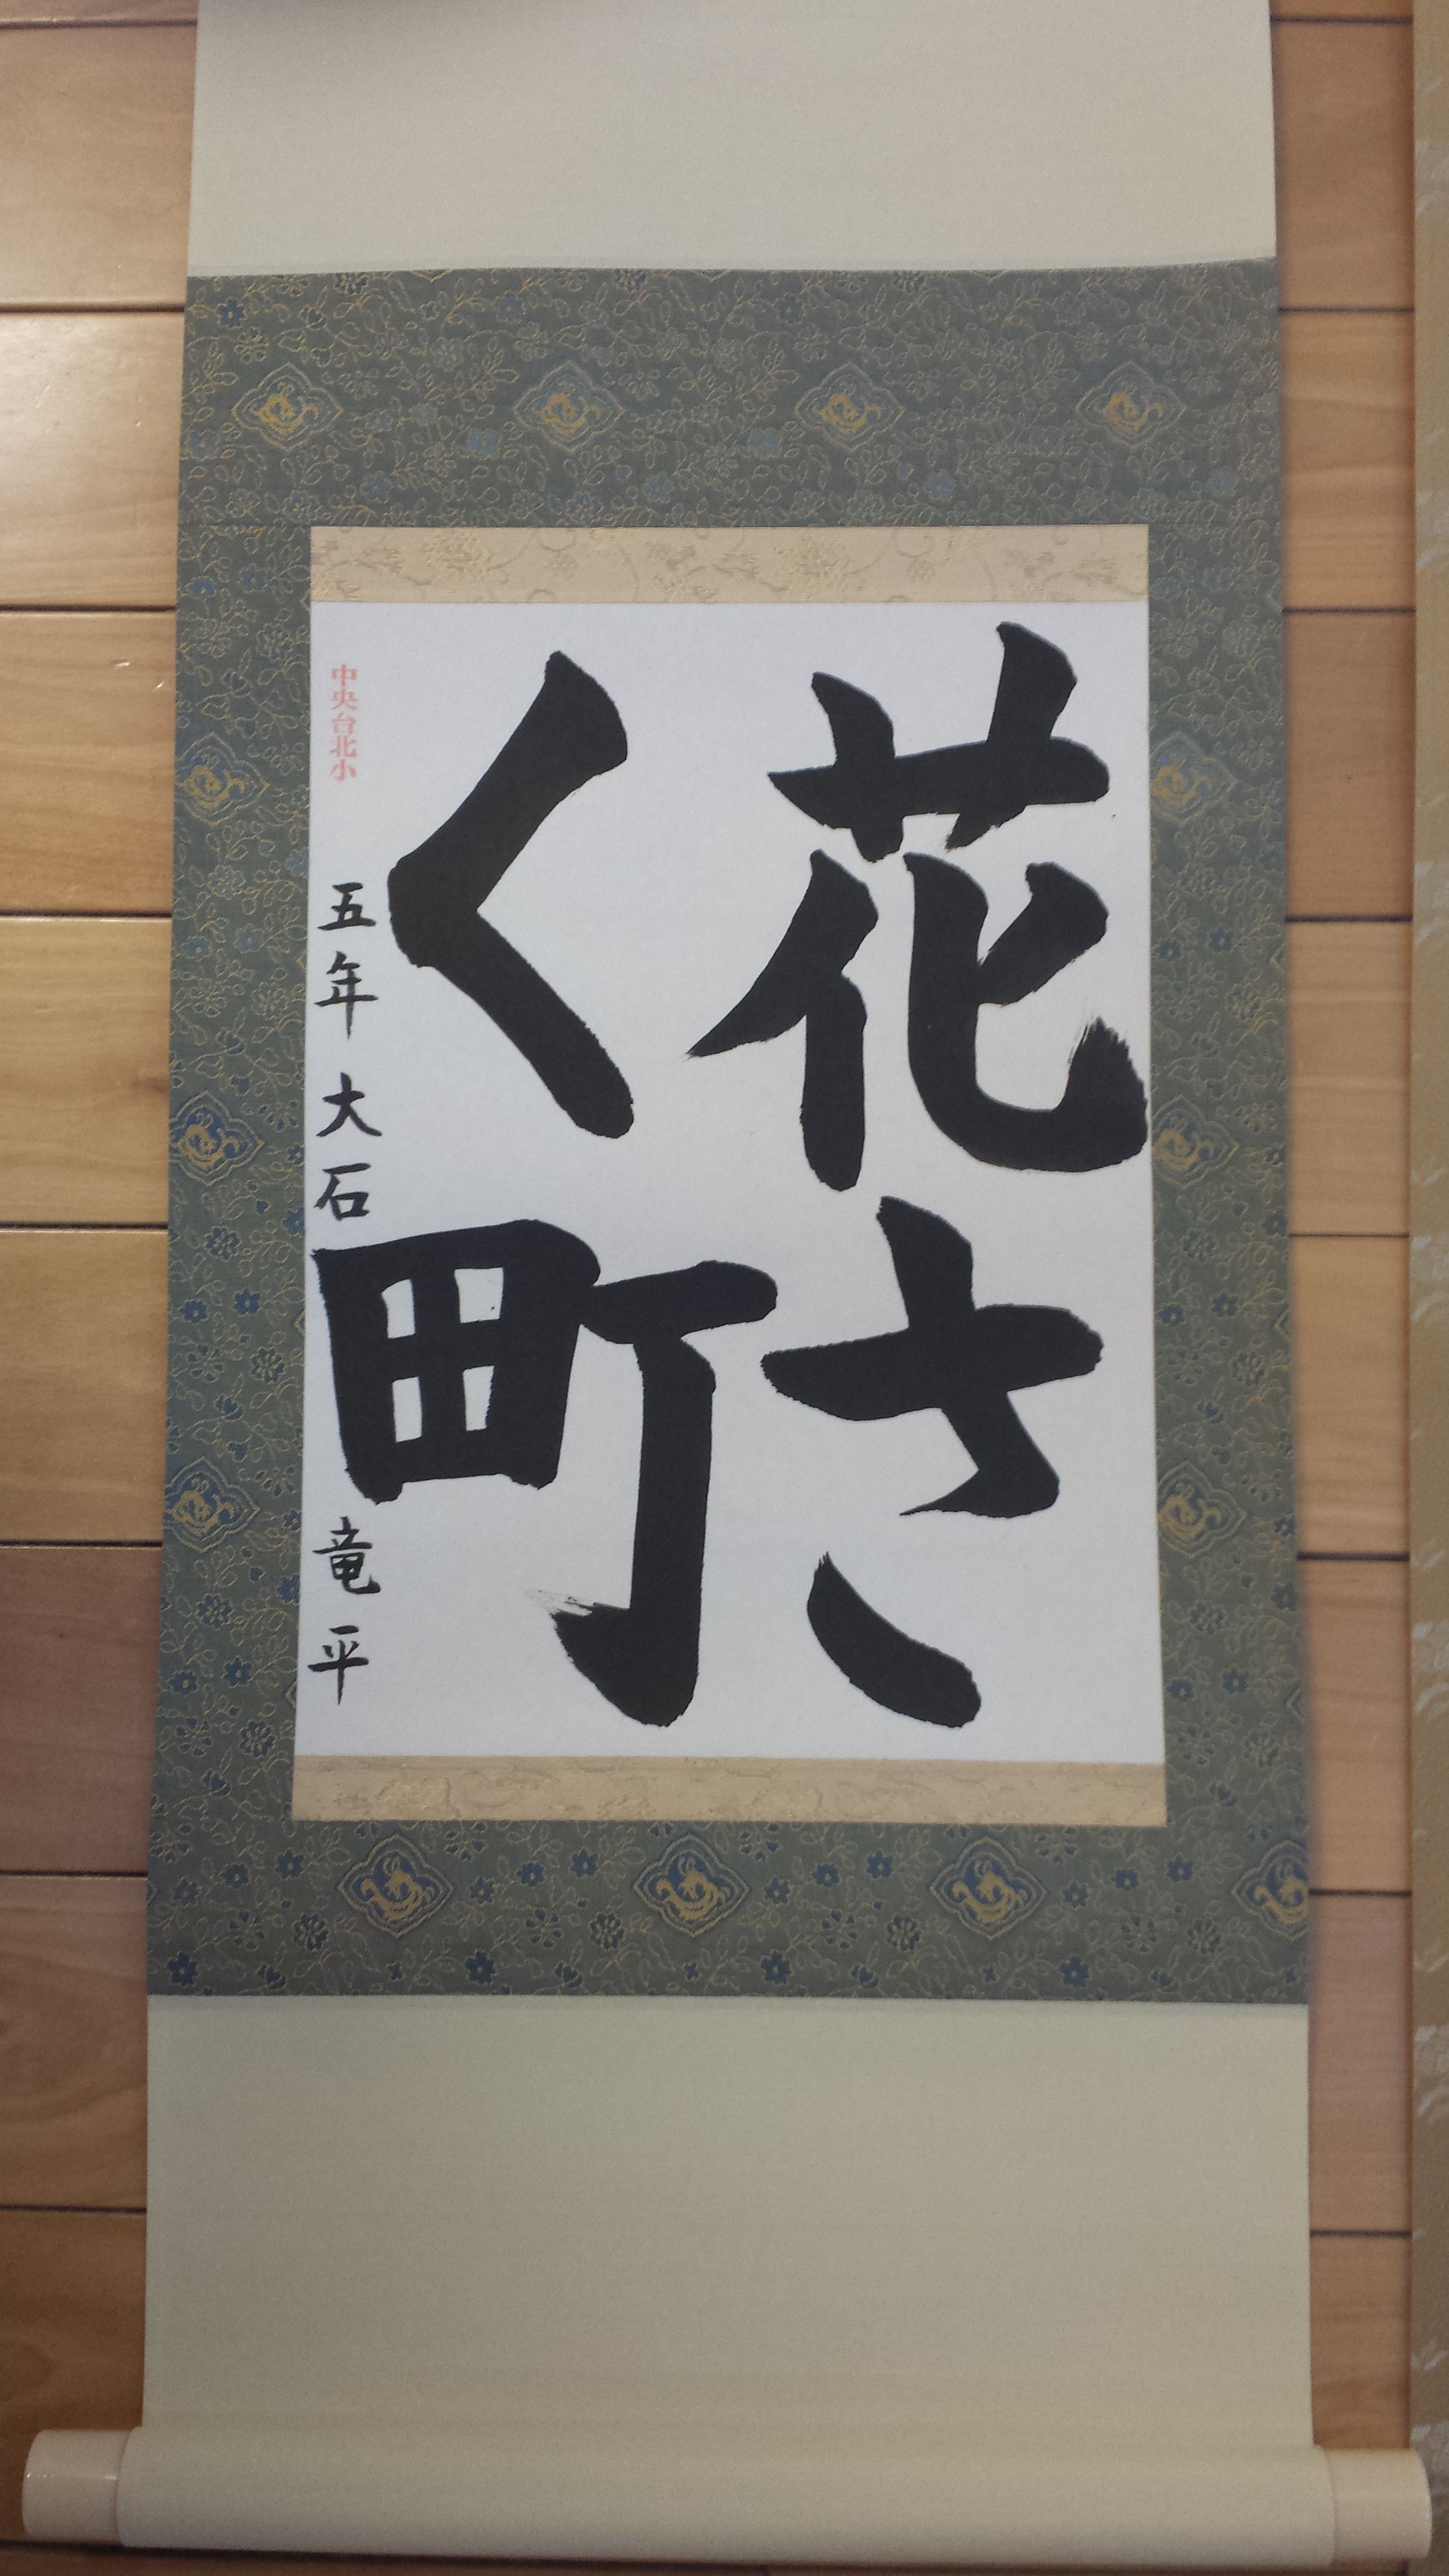 花さ
く町
中央台北小
五年 大石 竜平